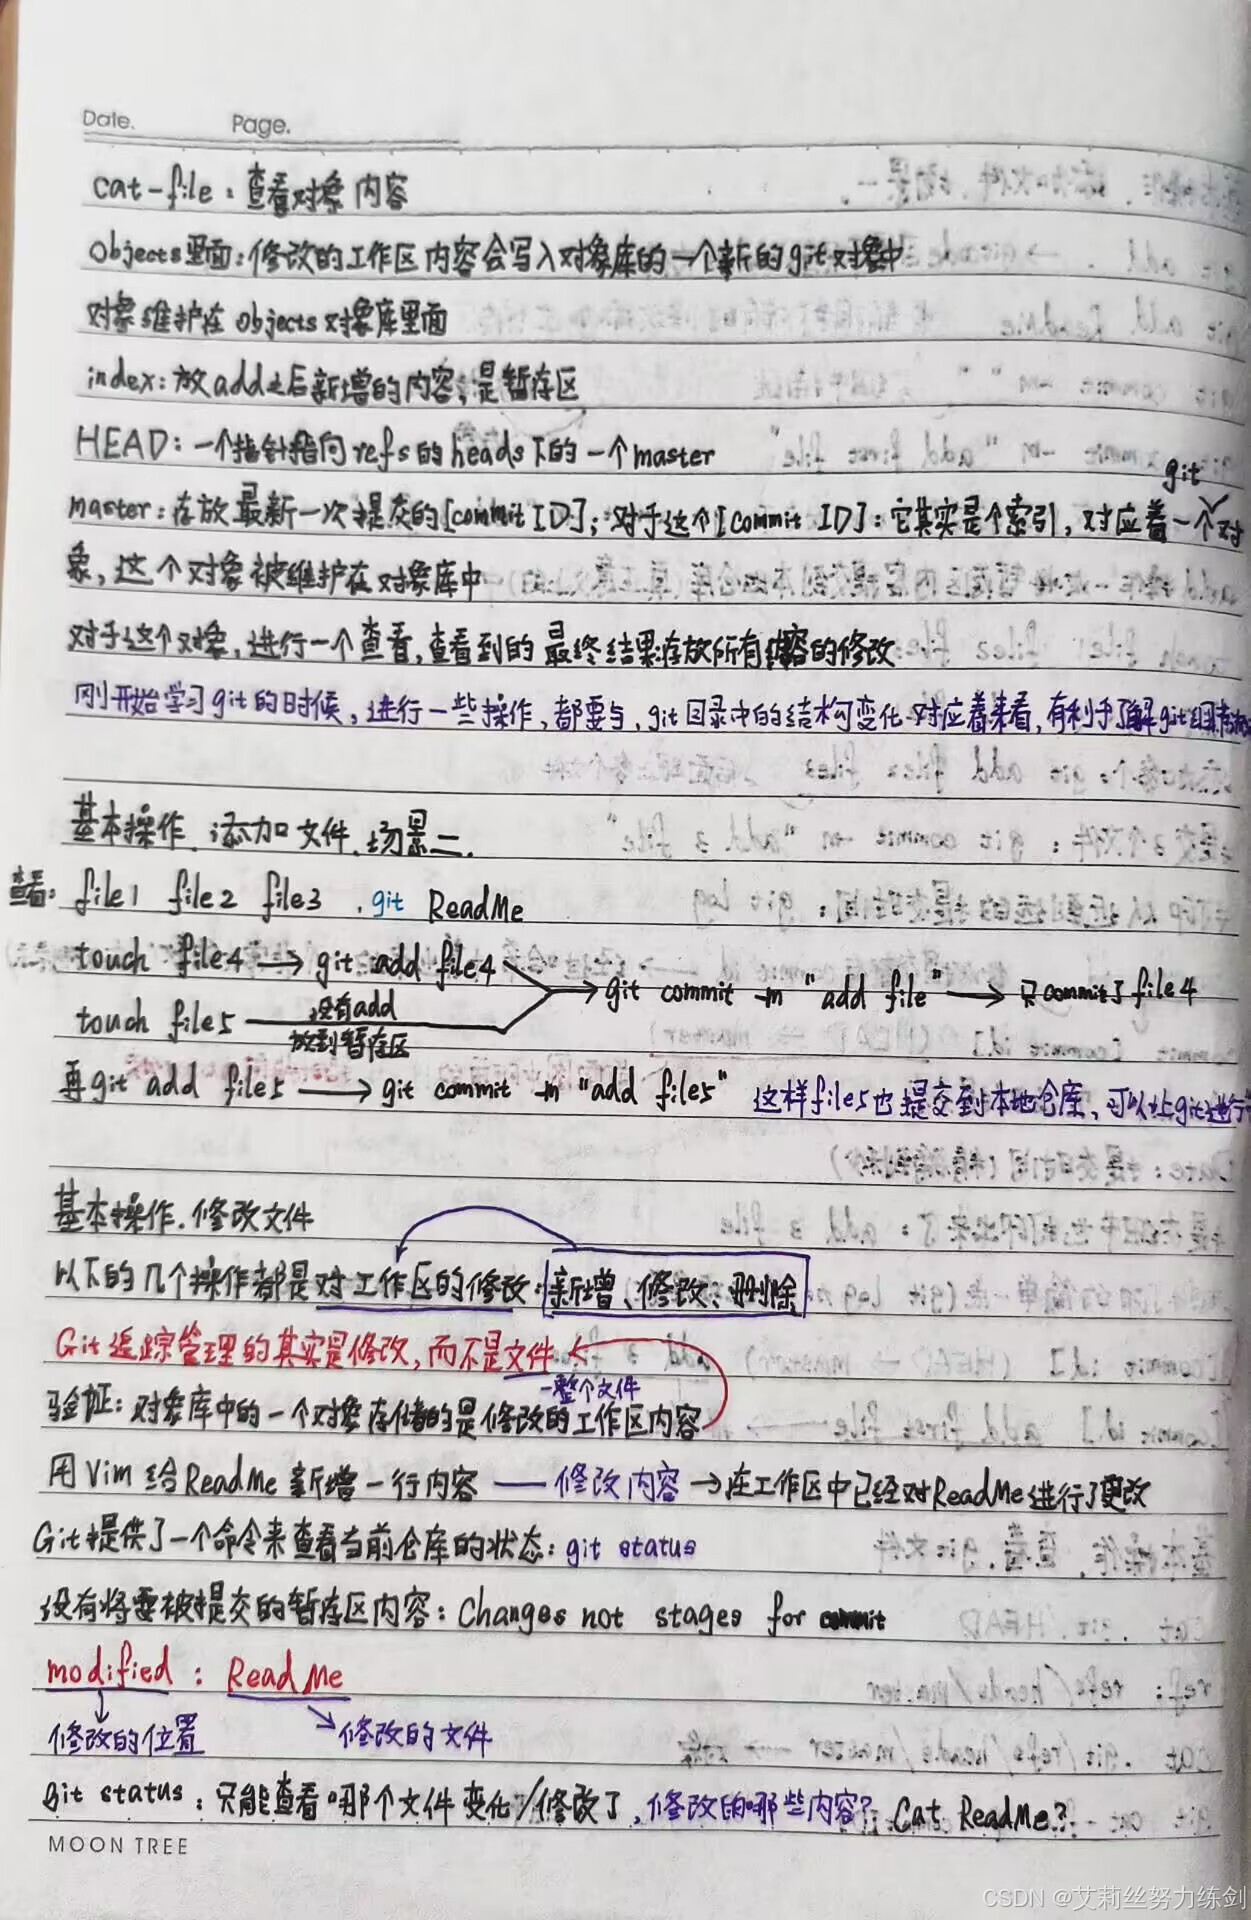 Date. Page.
cat-file：查看对象内容
Objects里面：修改的工作区内容会写入对象库的一个新的git对象中
对象维护在objects对象库里面
index：放add之后新增的内容；是暂存区
HEAD：一个指针指向refs的heads下的一个master
git
master：存放最新一次提交的[commit ID]；对于这个[commit ID]：它其实是个索引，对应着一个对
象，这个对象被维护在对象库中
对于这个对象，进行一个查看，查看到的最终结果存放所有内容的修改
刚开始学习git的时候，进行一些操作，都要与.git目录中的结构变化对应着来看，有利于了解git
基本操作.添加文件.场景二.
查看：file1 file2 file3 .git ReadMe
touch file4 → git add file4
→ git commit -m "add file" → 只commit了file4
touch file5 没有add
放到暂存区
再git add file5 → git commit -m "add file5" 这样file5也提交到本地仓库、可以让git进行
基本操作.修改文件
以下的几个操作都是对工作区的修改：新增、修改、删除
Git追踪管理的其实是修改，而不是文件
一整个文件
验证：对象库中的一个对象存储的是修改的工作区内容
用Vim给ReadMe新增一行内容 —— 修改内容 → 在工作区中已经对ReadMe进行了更改
Git提供了一个命令来查看当前仓库的状态：git status
没有将要被提交的暂存区内容：Changes not stages for commit
modified：ReadMe
修改的位置 修改的文件
git status：只能查看哪个文件变化/修改了，修改的哪些内容？Cat ReadMe？
MOON TREE
CSDN @艾莉丝努力练剑